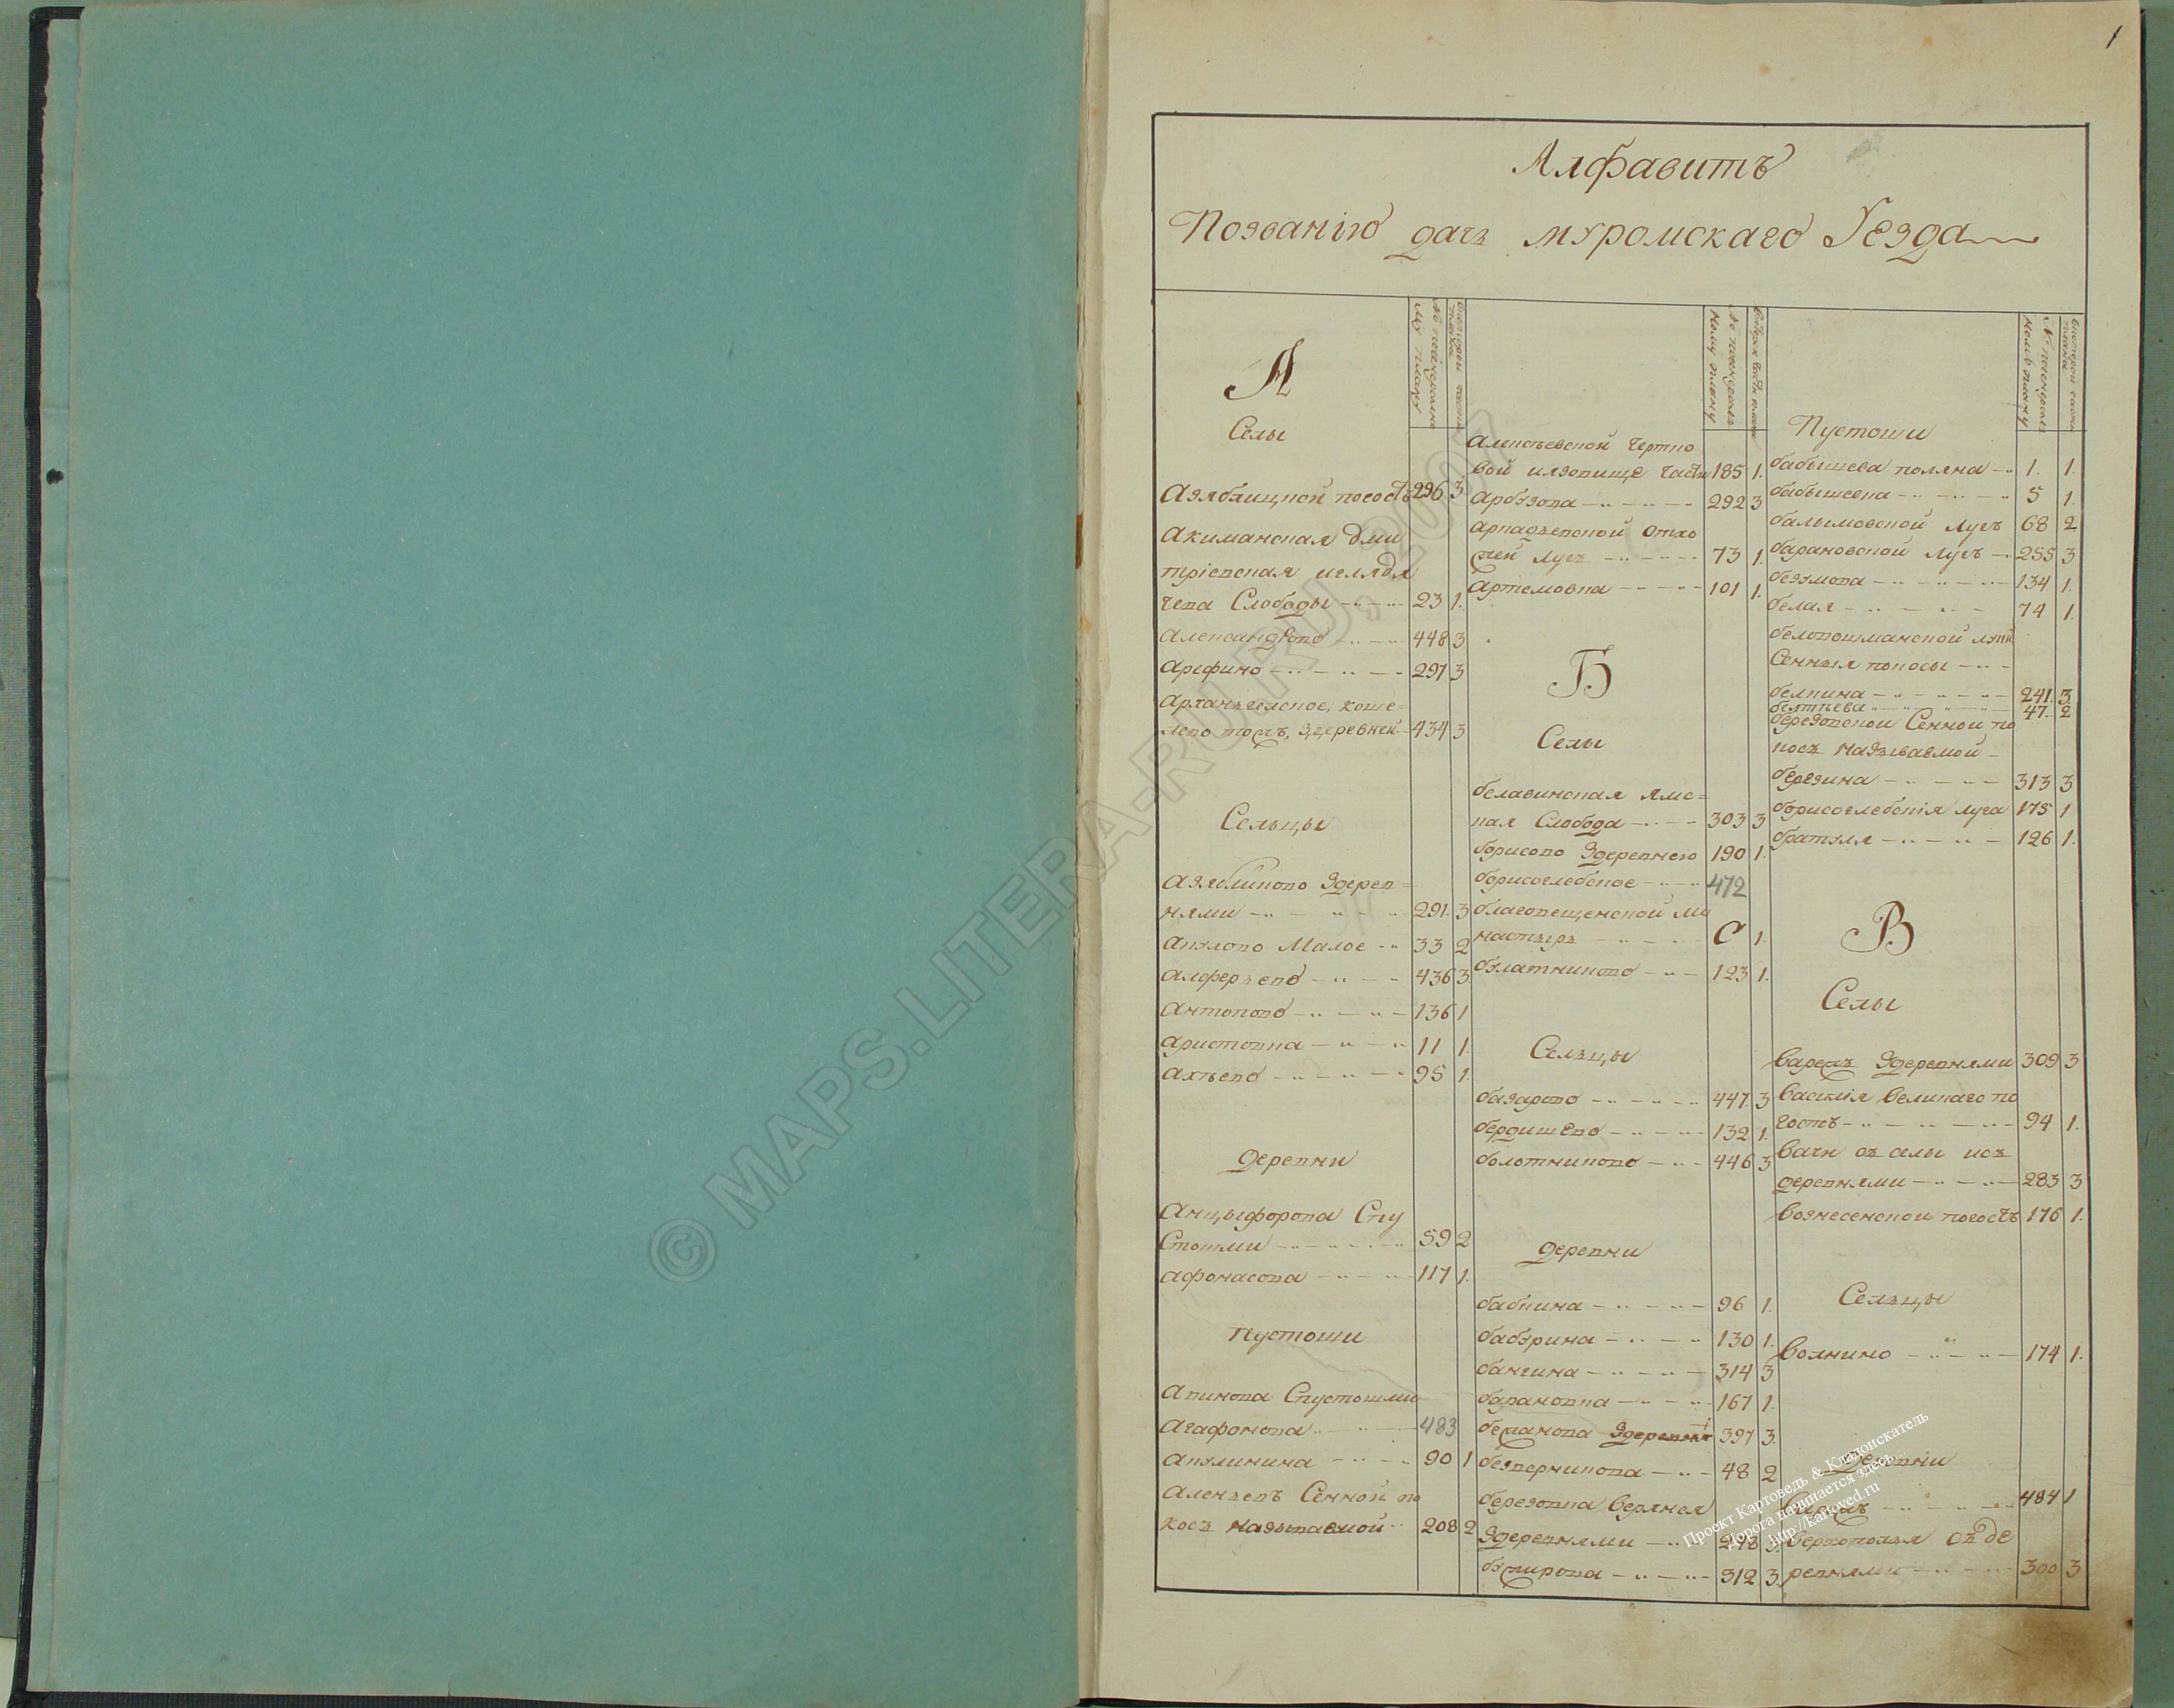 1
Алфавитъ
Позванію дачь муромскаго Уезда
А
Селы
Азяблицкой погостъ 296 3
Акиманская Дми
тріевская иглядя
чева Слободы 23 1.
Александрово 448 3
Арефино 297 3
Архангелское, коше=
лево тожъ, здеревней 434 3
Сельцы
Азябликово здерев=
нями 291. 3
Акулово Малое 33 2
Алферьево 436 3
Антоново 136 1
Аристовка 11 1.
Ахтьево 95 1.
Деревни
Анцыфорова Спу
стошми 59 2
Афонасова 117 1.
Пустоши
Аникова Спустошми
Агафонова 483
Акулинина 90 1
Аленьевъ Сенной по
косъ называемой 208 2
Алексеевской чертко
вой илзопище части 185 1.
Арбузова 292 3
Аркадьевской отхо
жей лугъ 73 1.
Артемовка 101 1.
Б
Селы
белавинская ямс=
кая Слобода 303 3
борисово здеревнею 190 1.
борисоглебское 472
благовещенской мо
настырь С 1.
булатниково 123 1.
Сельцы
базарово 447. 3
бердищево 132 1.
болотниково 446 3
Деревни
бабкина 96 1.
бабурина 130 1.
бангина 314 3
барановка 167 1.
бежанова здеревней 397 3.
безверникова 48 2
березовка верхняя
здеревнями 298 3.
бужирова 312 3.
Пустоши
бабышева поляна 1. 1.
бабышевка 5 1.
балымовской лугъ 68 2
барановской лугъ 255 3
безумова 134 1.
белая 74 1.
белокошманской лужи
Сенныя покосы
белкина 241. 3.
белтьева 47. 2
березовской Сенной по
косъ называемой
березина 313 3
борисоглебскія луга 175 1
братуля 126 1.
В
Селы
Варежъ здеревнями 309 3
Василія великаго по
гостъ 94 1.
Вачи съ селы исъ
деревнями 283 3
Вознесенской погостъ 176 1.
Сельцы
Волнино 174 1.
Деревни
484 1
Верхополья съ де
ревнями 300 3
© MAPS.LITERA-RU.RU, 2007
Проект Картоведъ & Кладоискатель
Дорога начинается здесь
http://kartoved.ru